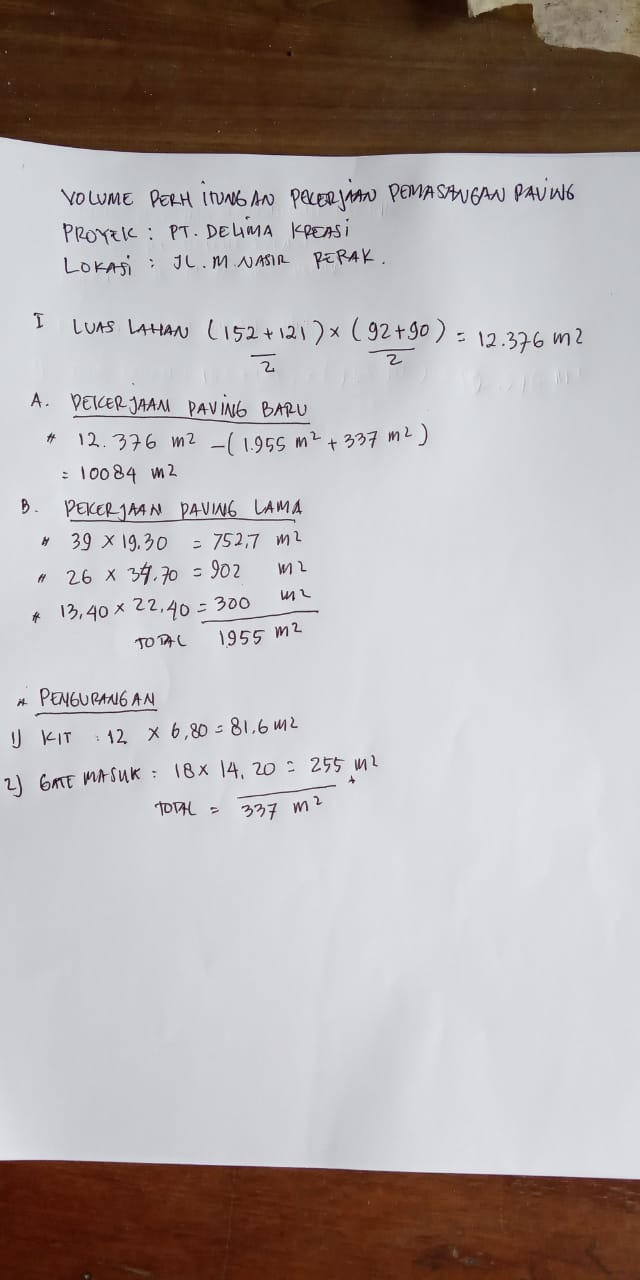 VOLUME PERHITUNGAN PEKERJAAN PEMASANGAN PAVING
PROYEK : PT. DELIMA KREASI
LOKASI : JL. M. NASIR PERAK.
I LUAS LAHAN (152+121)/2 x (92+90)/2 = 12.376 m2
A. PEKERJAAN PAVING BARU
* 12.376 m2 - (1.955 m2 + 337 m2)
= 10084 m2
B. PEKERJAAN PAVING LAMA
* 39 x 19.30 = 752,7 m2
* 26 x 34.70 = 902 m2
* 13,40 x 22,40 = 300 m2
TOTAL 1955 m2
* PENGURANGAN
1) KIT : 12 x 6,80 = 81,6 m2
2) GATE MASUK : 18 x 14,20 = 255 m2 +
TOTAL = 337 m2